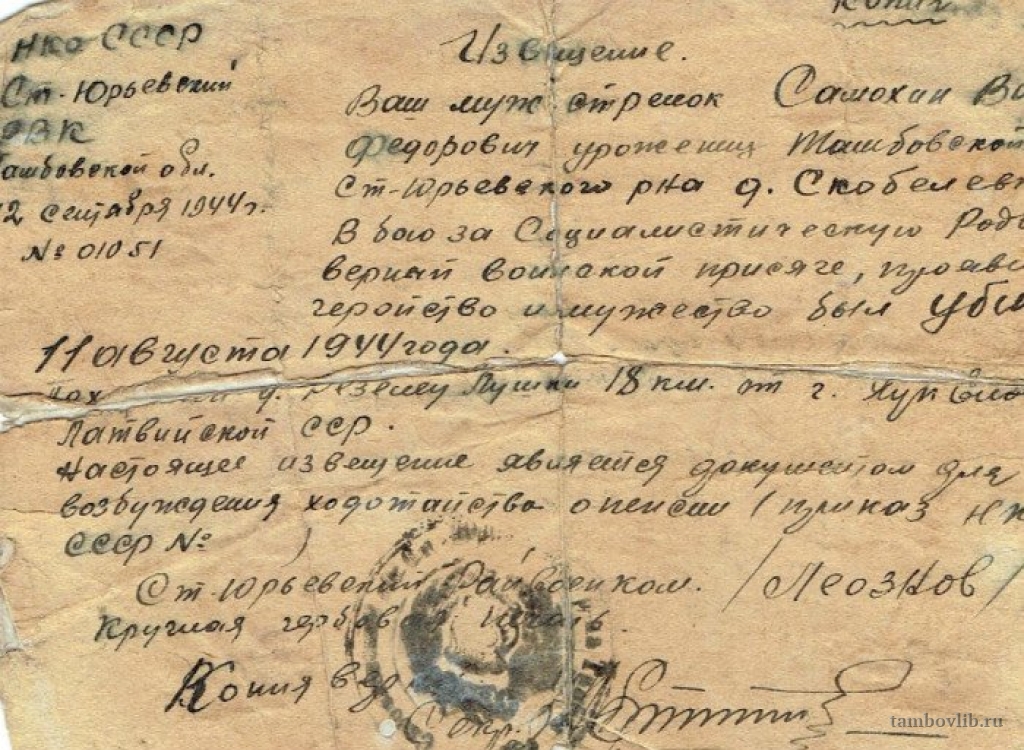 Копия
НКО СССР
Ст-Юрьевский
РВК
Тамбовской обл.
12 сентября 1944 г.
№ 01051
Извещение.
Ваш муж стрелок Самохин Ва
Федорович урожениц Тамбовской
Ст-Юрьевского р-на д. Скобелевк
В бою за Социалистическую Род
верный воинской присяге, прояви
геройство и мужество был уби
11 августа 1944 года.
д. Пушки 18 км. от г.
Латвийской ССР.
Настоящее извещение является документом для
возбуждения ходотайства о пенсии (приказ НК
СССР № )
Ст-Юрьевский Райвоенком. /Леознов/
Круглая гербовая печать.
Копия вер
Секр.
tambovlib.ru